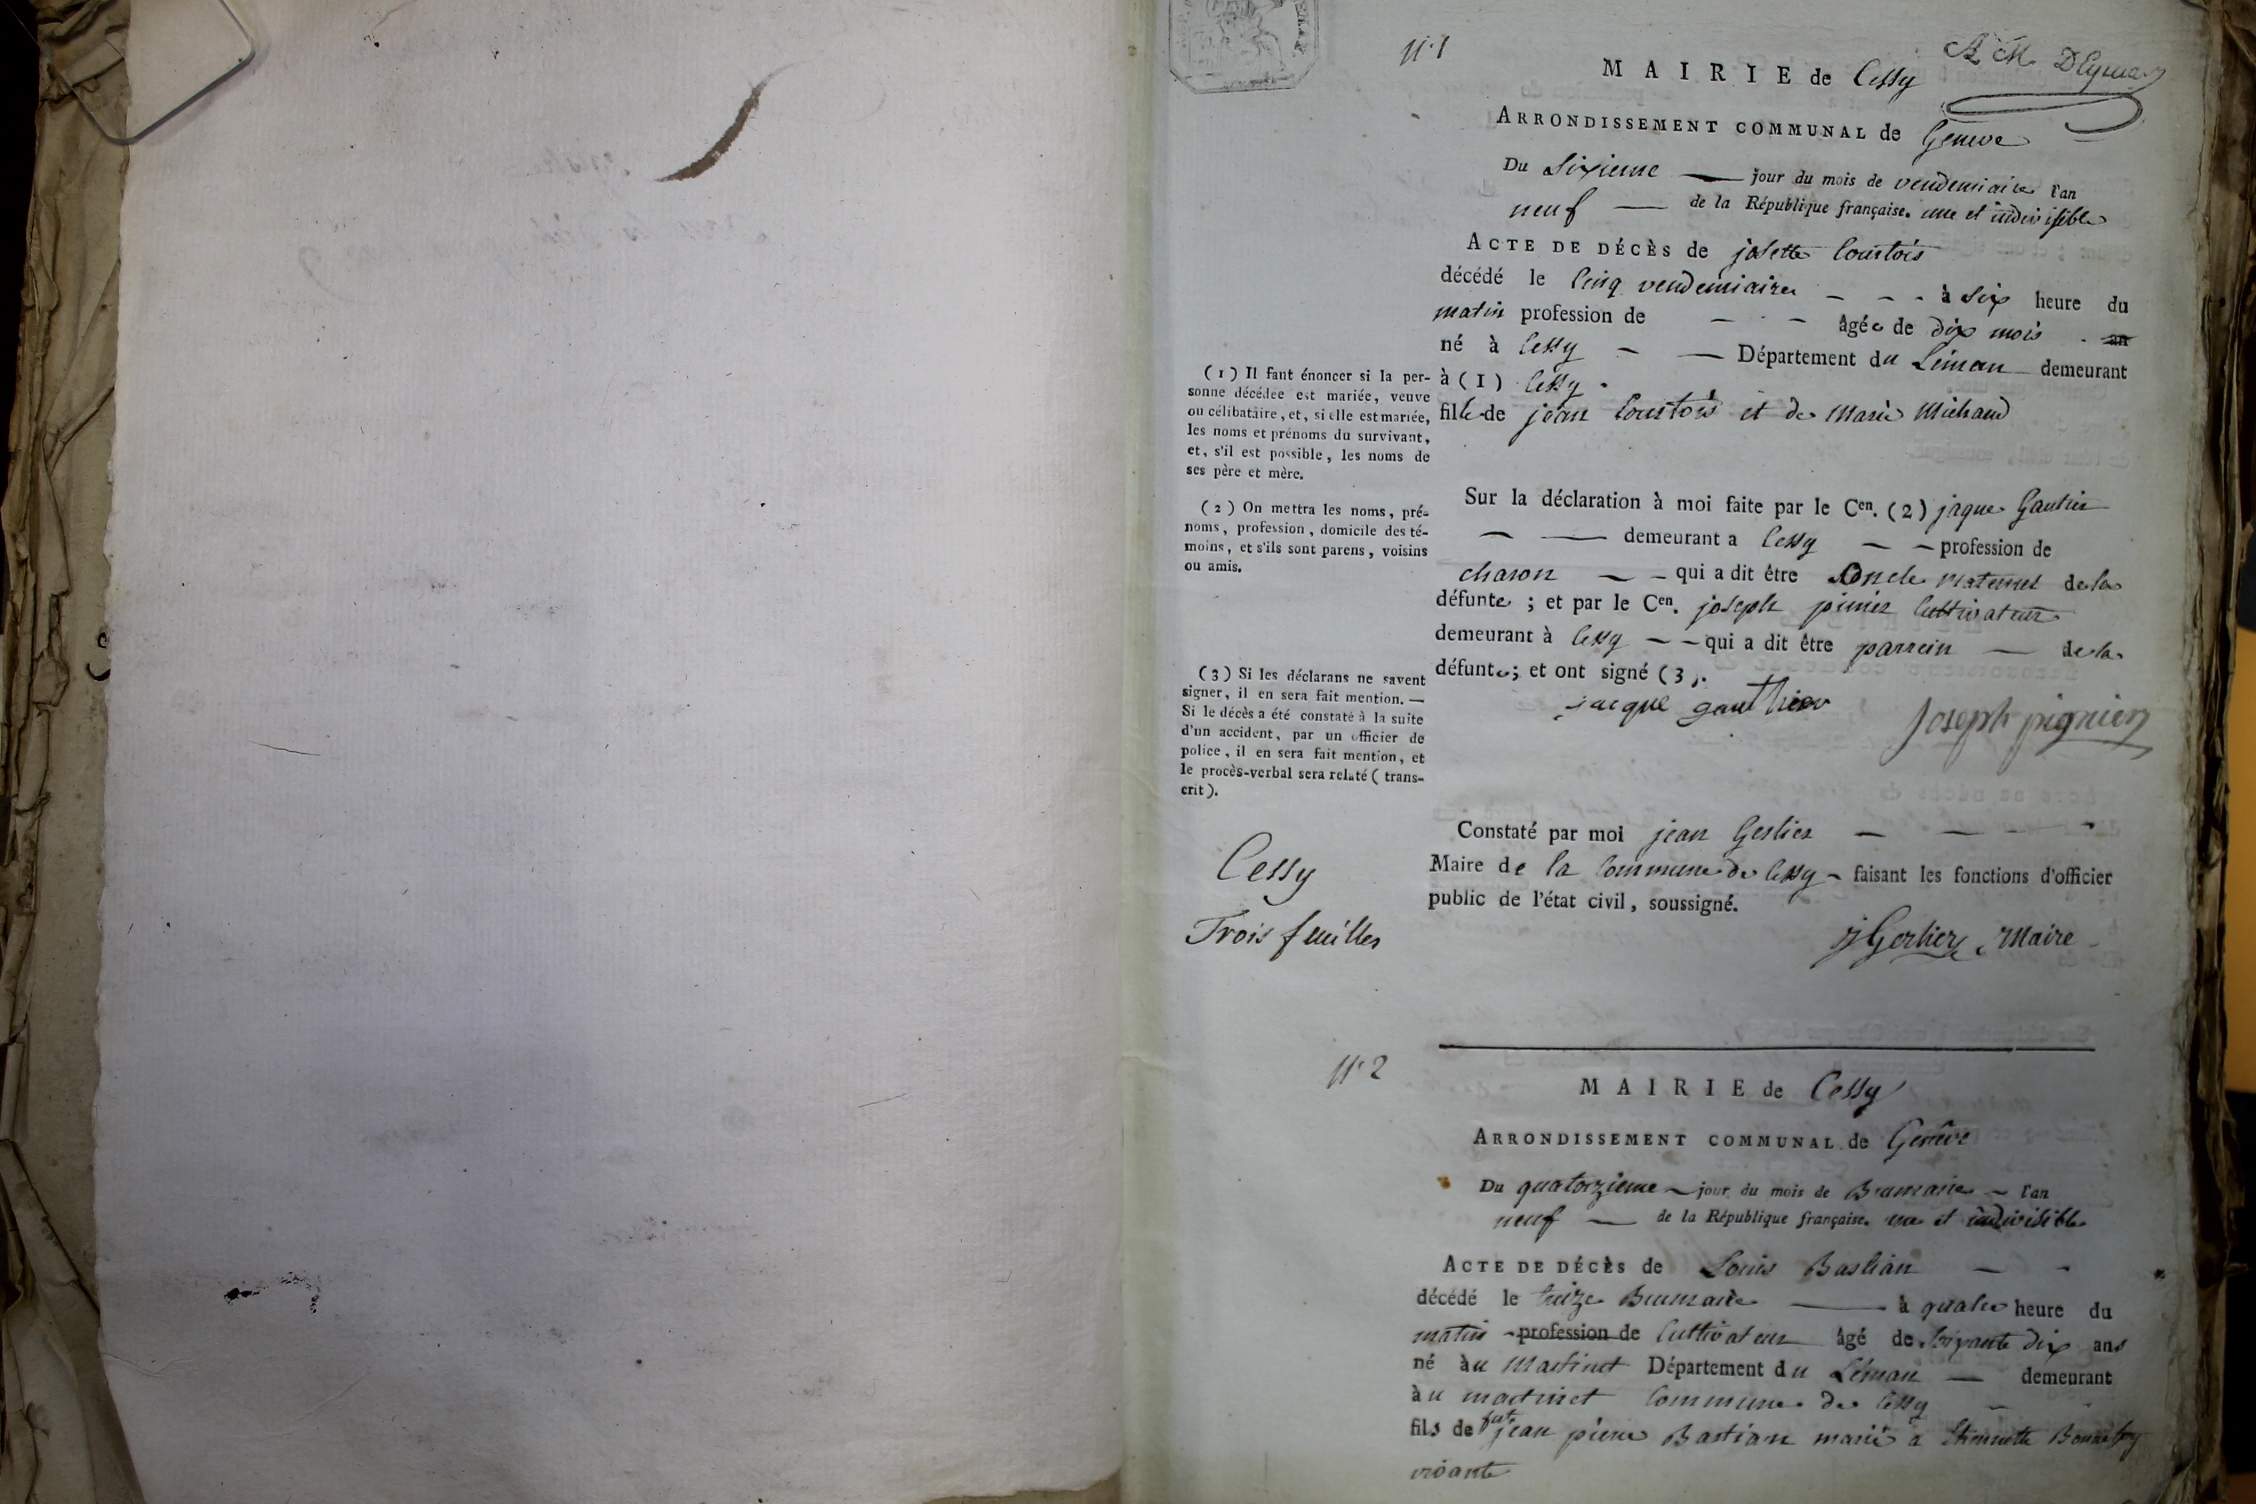 N.º 1
MAIRIE de Cessy
ARRONDISSEMENT COMMUNAL de Geneve
Du Sixieme — jour du mois de vendemiaire l'an
neuf — de la République française. une et indivisible
ACTE DE DÉCÈS de josette Courtois
décédé le Cinq vendemiaire - - - à Six heure du
matin profession de - - - âgée de dix mois - an
né à Cessy - — Département du Léman demeurant
à (1) Cessy.
fille de jean Courtois et de Marie Michaud
(1) Il faut énoncer si la per-
sonne décédée est mariée, veuve
ou célibataire, et, si elle est mariée,
les noms et prénoms du survivant,
et, s'il est possible, les noms de
ses père et mère.
(2) On mettra les noms, pré-
noms, profession, domicile des té-
moins, et s'ils sont parens, voisins
ou amis.
Sur la déclaration à moi faite par le Cen. (2) jaque Gautier
— — demeurant a Cessy — — profession de
charon — - qui a dit être oncle maternel de la
défunte ; et par le Cen. joseph pinier Cultivateur
demeurant à Cessy — — qui a dit être parrein — de la
défunte ; et ont signé (3).
jacque gauthier
Joseph pignier
(3) Si les déclarans ne savent
signer, il en sera fait mention. —
Si le décès a été constaté à la suite
d'un accident, par un officier de
police, il en sera fait mention, et
le procès-verbal sera relaté (trans-
crit).
Constaté par moi jean Gerlier — — - -
Maire de la Commune de Cessy - faisant les fonctions d'officier
public de l'état civil, soussigné.
J Gerlier Maire
Cessy
Trois feuilles
N.º 2
MAIRIE de Cessy
ARRONDISSEMENT COMMUNAL de Genève
Du quatorzieme - jour du mois de Brumaire - l'an
neuf — de la République française. une et indivisible
ACTE DE DÉCÈS de Louis Bastian — -
décédé le treize Brumaire — à quatre heure du
matin - profession de Cultivateur âgé de Soixante dix ans
né àu Martinet Département du Léman — demeurant
àu martinet Commune de Cessy -
fils de fut jean pierre Bastian marié a Etiennette
vivante